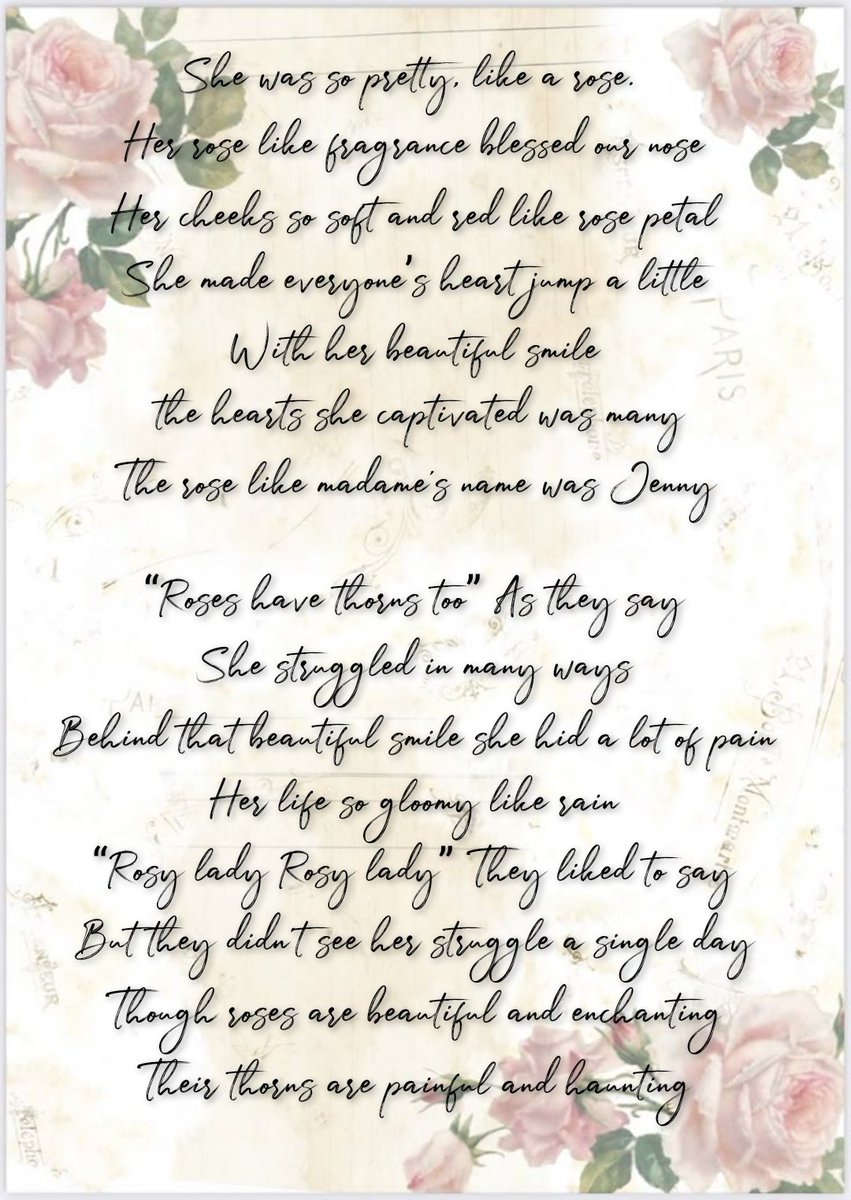 She was so pretty, like a rose.
Her rose like fragrance blessed our nose
Her cheeks so soft and red like rose petal
She made everyone's heart jump a little
With her beautiful smile
the hearts she captivated was many
The rose like madame's name was Jenny
"Roses have thorns too" As they say
She struggled in many ways
Behind that beautiful smile she hid a lot of pain
Her life so gloomy like rain
"Rosy lady Rosy lady" They liked to say
But they didn't see her struggle a single day
Though roses are beautiful and enchanting
Their thorns are painful and haunting
PARIS